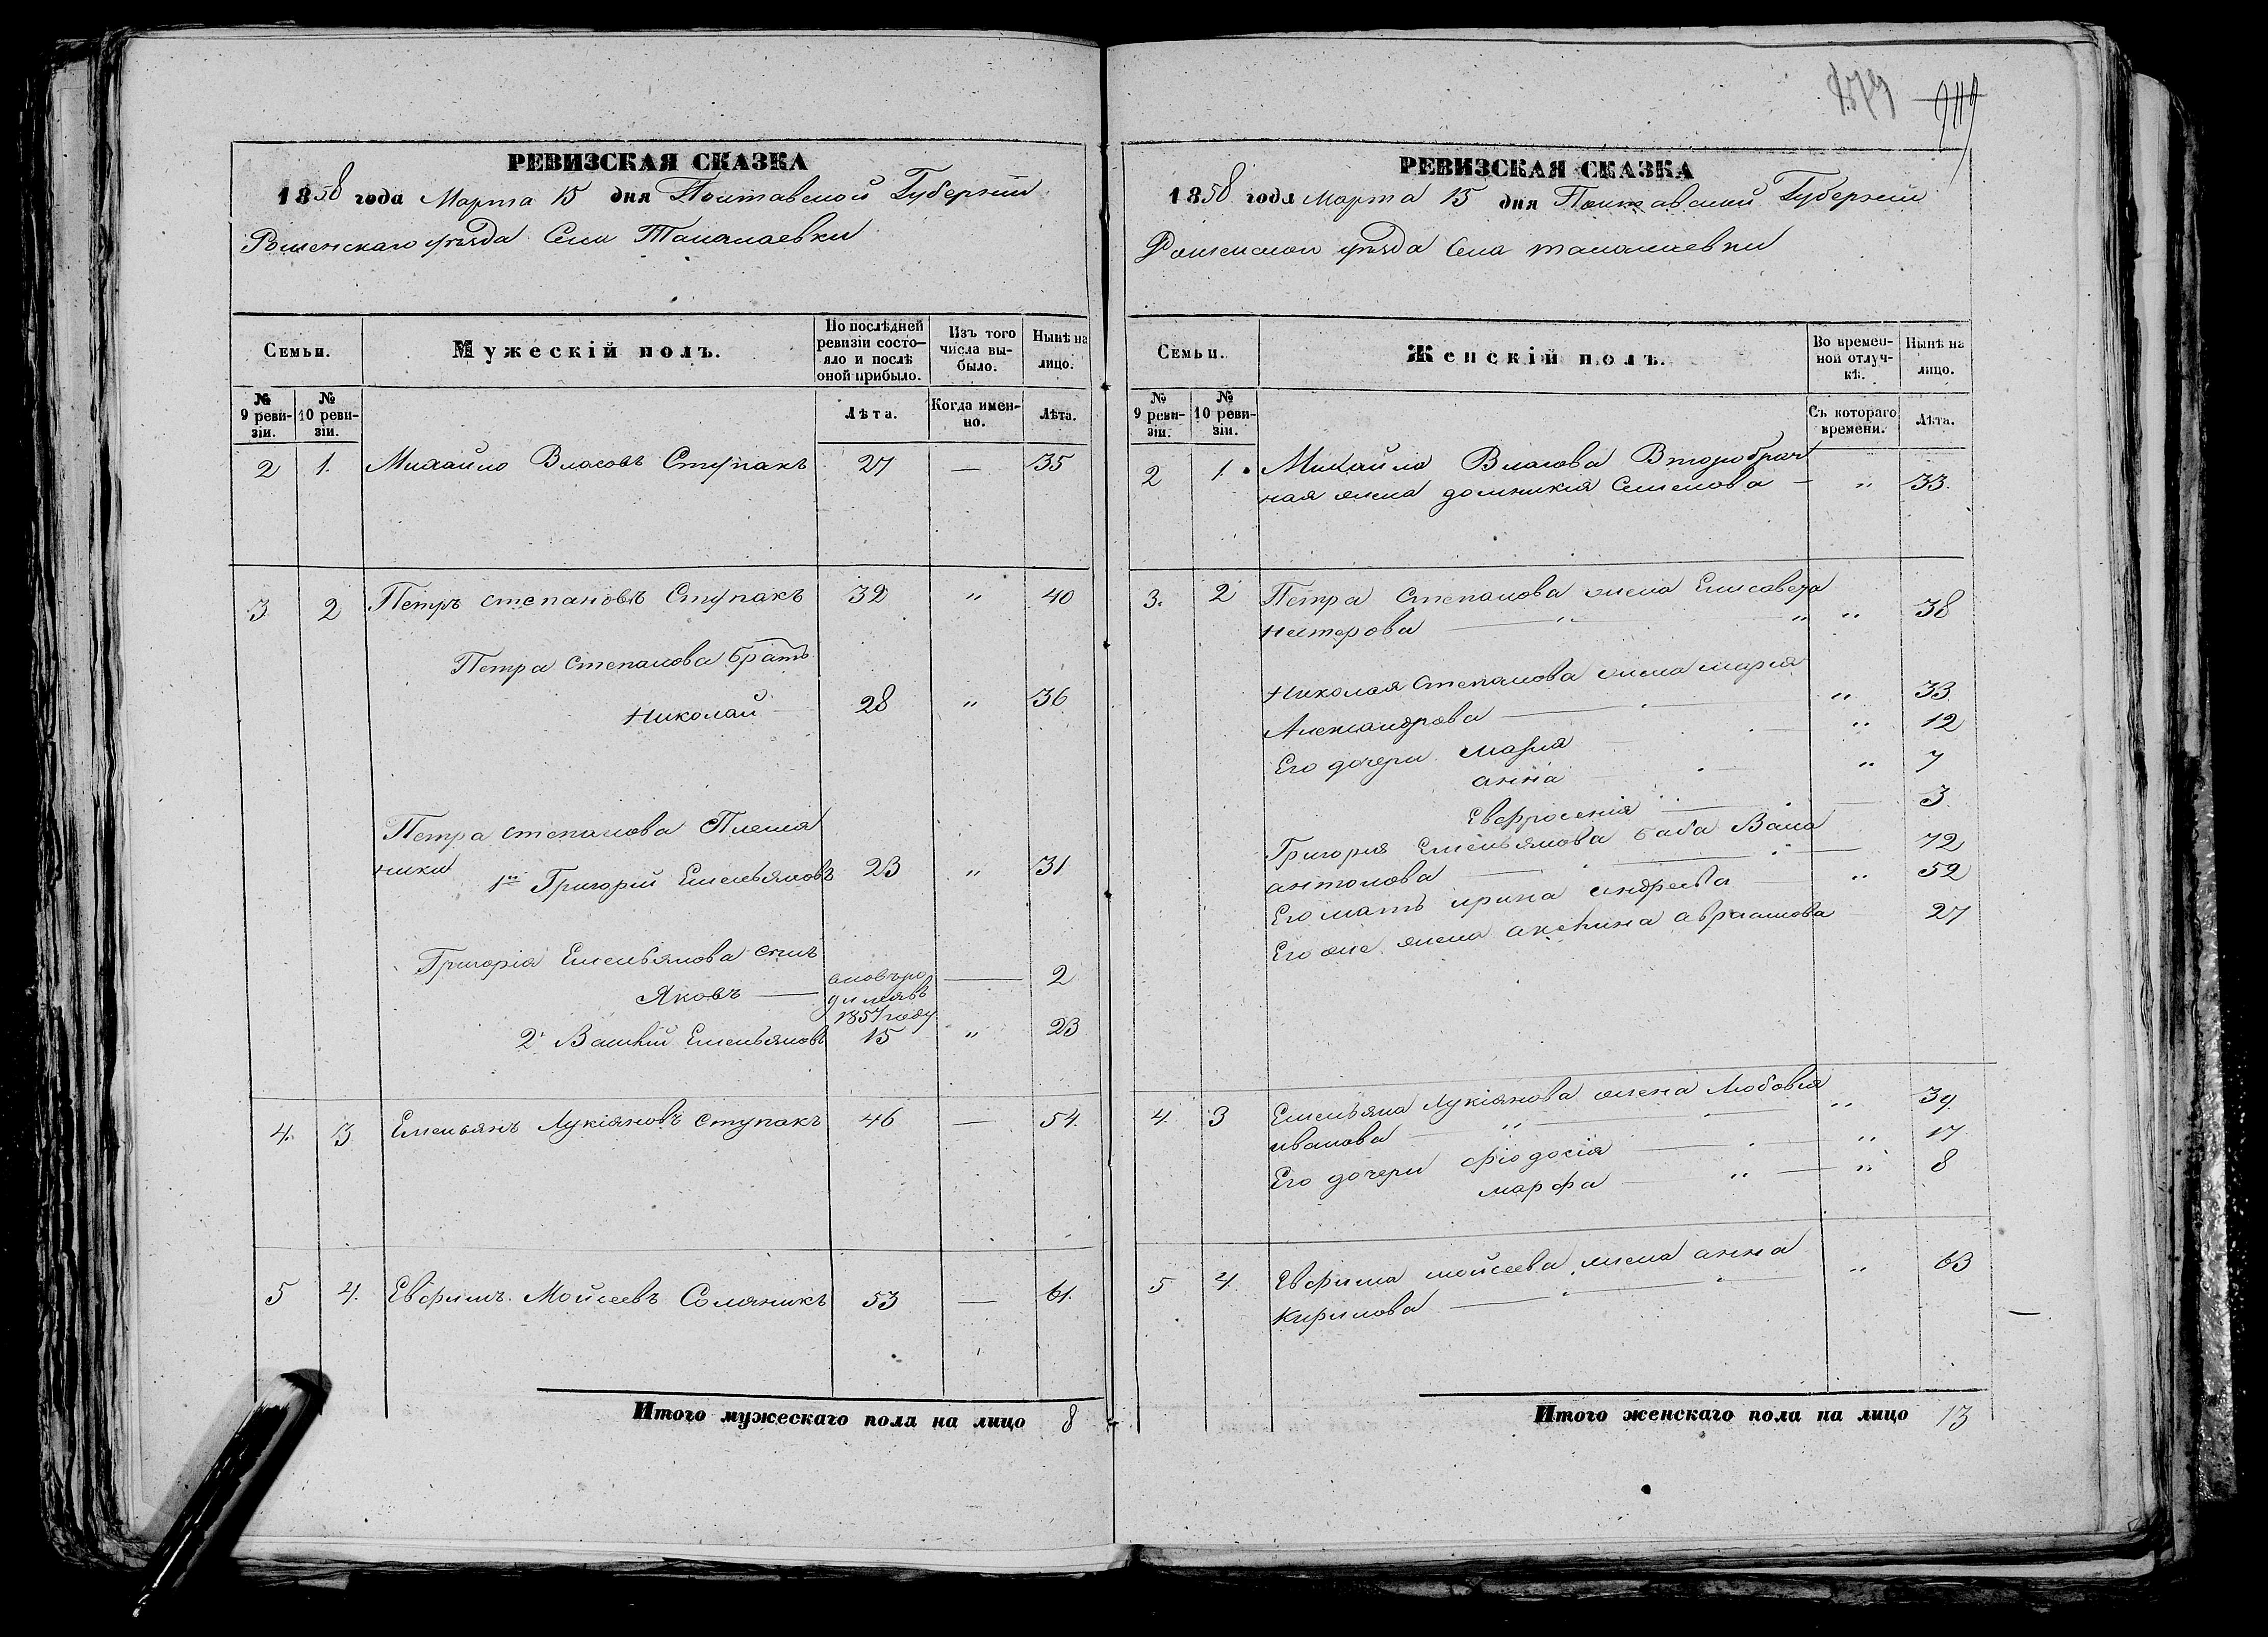 РЕВИЗСКАЯ СКАЗКА
1858 года Марта 15 дня Полтавской Губерніи
Роменскаго уѣзда Села Талалаевки
Семьи.
Мужескій полъ.
По послѣдней ревизіи состо-
яло и послѣ
оной прибыло.
Изъ того
числа вы-
было.
Нынѣ на
лицо.
№ 9 реви-
зіи.
№ 10 реви-
зіи.
Лѣта.
Когда имен-
но.
Лѣта.
2 1. Михайло Власовъ Ступакъ 27 — 35
3 2 Петръ степановъ Ступакъ 32 " 40
Петра степанова братъ
Николай 28 " 36
Петра степанова Племя
ники
1й Григорій Емельяновъ 23 " 31
Григорія Емельянова сынъ
Яковъ — вновь ро
дился въ
1857 году — 2
2й Василій Емельяновъ 15 " 23
4. 3 Емельянъ Лукіяновъ ступакъ 46 — 54.
5 4. Евфимъ Мойсеевъ Соляникъ 53 — 61.
Итого мужескаго пола на лицо 8
РЕВИЗСКАЯ СКАЗКА
1858 года марта 15 дня Полтавской Губерніи
Роменскаго уѣзда Села талалаевки
Семьи.
Женскій полъ.
Во времен-
ной отлуч-
кѣ.
Нынѣ на
лицо.
№ 9 реви-
зіи.
№ 10 реви-
зіи.
Съ котораго
времени.
Лѣта.
2 1. Михайла Власова Второбрач
ная жена домникія Семенова — " 33.
3. 2 Петра Степанова жена Елисавета
нестерова — " 38
Николая Степанова жена марія
Александрова — " 33
Его дочери марія — " 12
анна — " 7
Евфросенія — 3.
Григорія Емельянова баба Васа
антонова — 72
Его мать ирина андреева — " 52
Его же жена аксенина авраамова 27
4. 3 Емельяна Лукіянова жена Любовія
иванова — " 39.
Его дочери фіодосія — " 17
марфа — " 8
5 4. Евфима мойсеева жена анна
кирилова — " 63
Итого женскаго пола на лицо 13